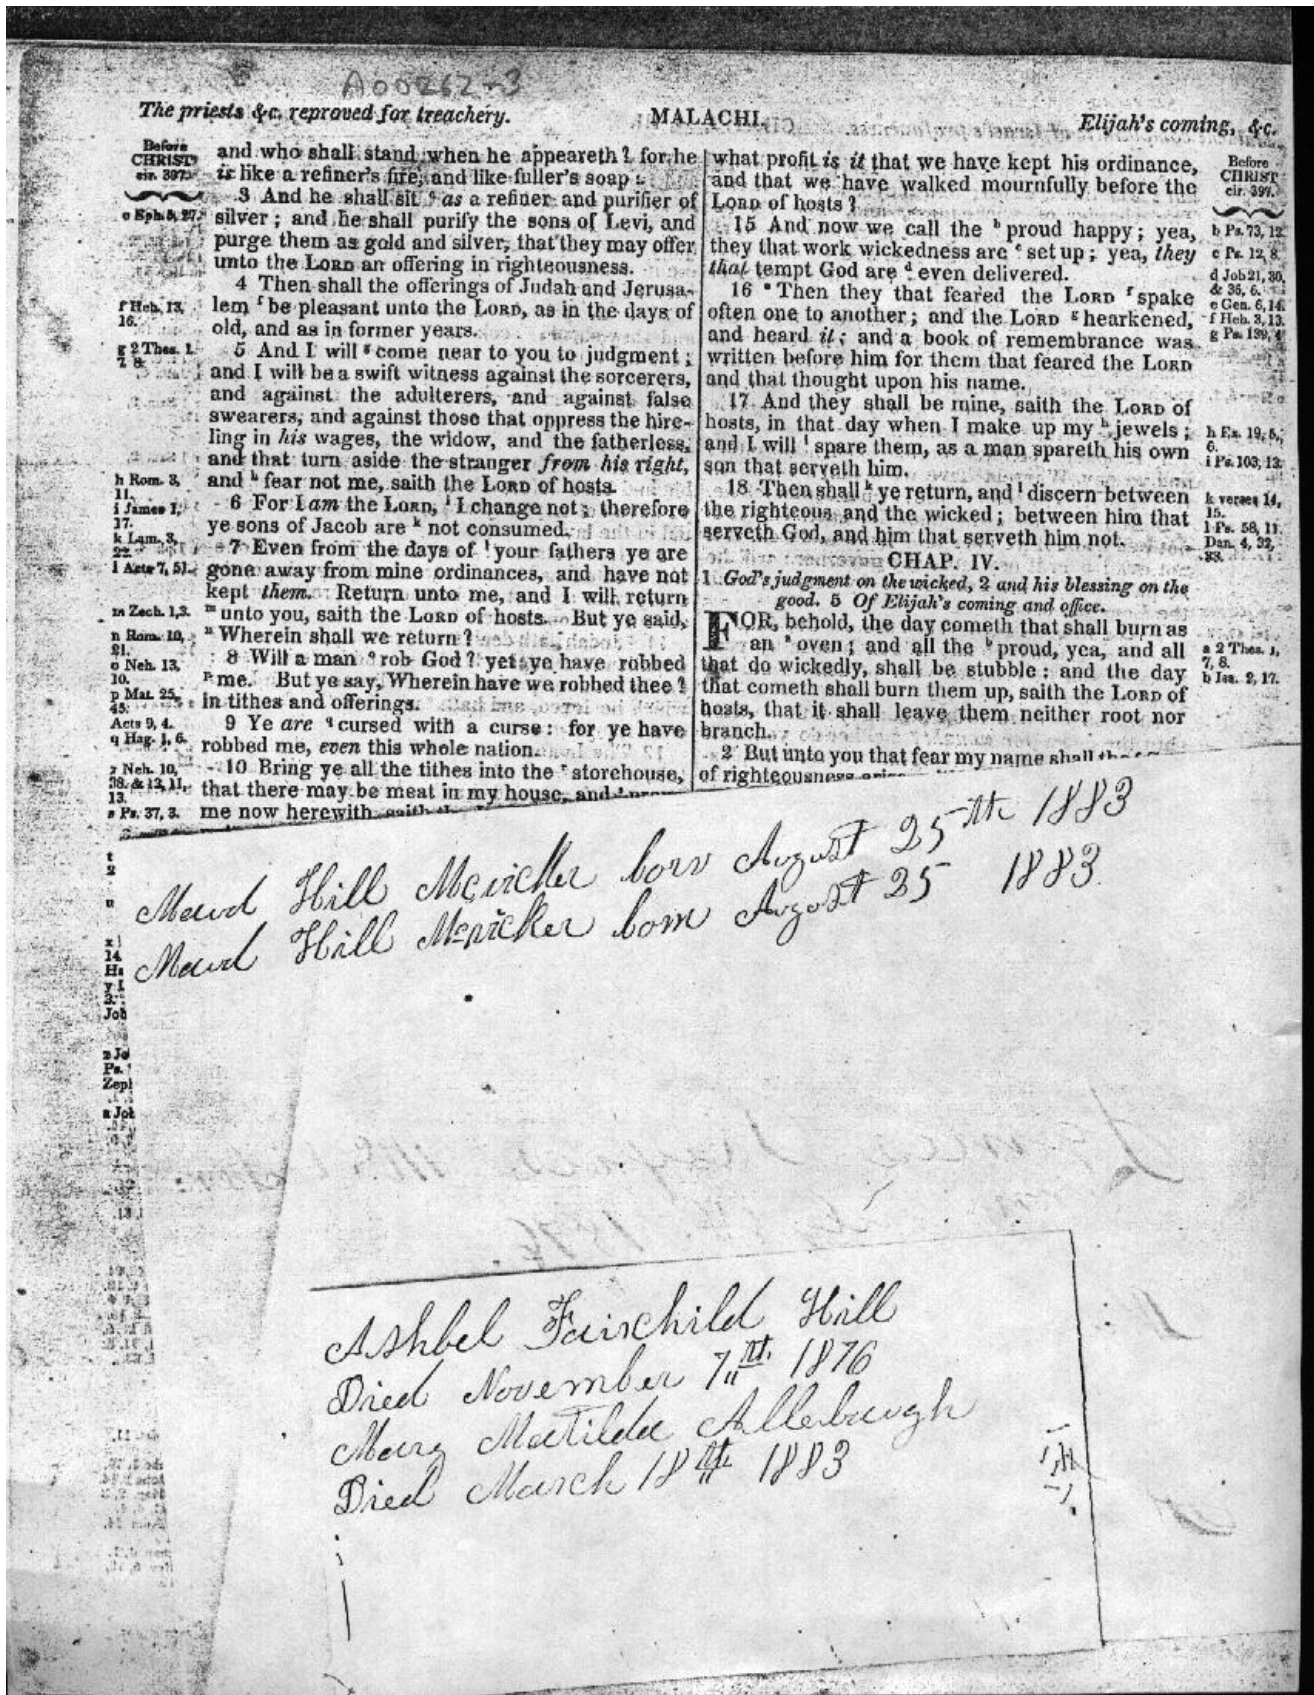 A00262-3
The priests &c. reproved for treachery. MALACHI. Elijah's coming, &c.
Before
CHRIST
cir. 397.
e Eph. 5, 27.
f Heb. 13,
16.
g 2 Thes. 1.
7, 8.
h Rom. 3,
11.
i James 1,
17.
k Lam. 3,
22.
l Acts 7, 51.
m Zech. 1,3.
n Rom. 10,
21.
o Neh. 13,
10.
p Mat. 25,
45.
Acts 9, 4.
q Hag. 1, 6.
r Neh. 10,
38. & 13, 11,
13.
s Ps. 37, 3.
and who shall stand when he appeareth? for he
is like a refiner's fire, and like fuller's soap:
3 And he shall sit e as a refiner and purifier of
silver; and he shall purify the sons of Levi, and
purge them as gold and silver, that they may offer
unto the LORD an offering in righteousness.
4 Then shall the offerings of Judah and Jerusa-
lem f be pleasant unto the LORD, as in the days of
old, and as in former years.
5 And I will g come near to you to judgment;
and I will be a swift witness against the sorcerers,
and against the adulterers, and against false
swearers, and against those that oppress the hire-
ling in his wages, the widow, and the fatherless,
and that turn aside the stranger from his right,
and h fear not me, saith the LORD of hosts.
6 For I am the LORD, i I change not; therefore
ye sons of Jacob are k not consumed.
7 Even from the days of l your fathers ye are
gone away from mine ordinances, and have not
kept them. Return unto me, and I will return
m unto you, saith the LORD of hosts. But ye said,
n Wherein shall we return?
8 Will a man o rob God? yet ye have robbed
p me. But ye say, Wherein have we robbed thee?
in tithes and offerings.
9 Ye are q cursed with a curse: for ye have
robbed me, even this whole nation.
10 Bring ye all the tithes into the r storehouse,
that there may be meat in my house, and
me now herewith saith
what profit is it that we have kept his ordinance,
and that we have walked mournfully before the
LORD of hosts?
15 And now we call the b proud happy; yea,
they that work wickedness are c set up; yea, they
that tempt God are d even delivered.
16 e Then they that feared the LORD f spake
often one to another; and the LORD g hearkened,
and heard it; and a book of remembrance was
written before him for them that feared the LORD
and that thought upon his name.
17 And they shall be mine, saith the LORD of
hosts, in that day when I make up my h jewels;
and I will i spare them, as a man spareth his own
son that serveth him.
18 Then shall k ye return, and l discern between
the righteous and the wicked; between him that
serveth God, and him that serveth him not.
CHAP. IV.
1 God's judgment on the wicked, 2 and his blessing on the
good. 5 Of Elijah's coming and office.
FOR, behold, the day cometh that shall burn as
an a oven; and all the b proud, yea, and all
that do wickedly, shall be stubble: and the day
that cometh shall burn them up, saith the LORD of
hosts, that it shall leave them neither root nor
branch.
2 But unto you that fear my name shall
of righteousness
Before
CHRIST
cir. 397.
b Ps. 73, 12.
c Ps. 12, 8.
d Job 21, 30.
& 36, 6.
e Gen. 6, 14.
f Heb. 3, 13.
g Ps. 139, 4.
h Ex. 19, 5,
6.
i Ps. 103, 13.
k verses 14,
15.
l Ps. 58, 11.
Dan. 4, 32,
33.
a 2 Thes. 1,
7, 8.
b Isa. 2, 17.
t
2
u
x
14
y
3.
Job
z Jo
Ps.
Zepl
a Job
Maud Hill Mcvicker born August 25th 1883
Maud Hill Mcvicker born August 25 1883
Ashbel Fairchild Hill
Died November 7th 1876
Mary Matilda Allebaugh
Died March 18th 1883